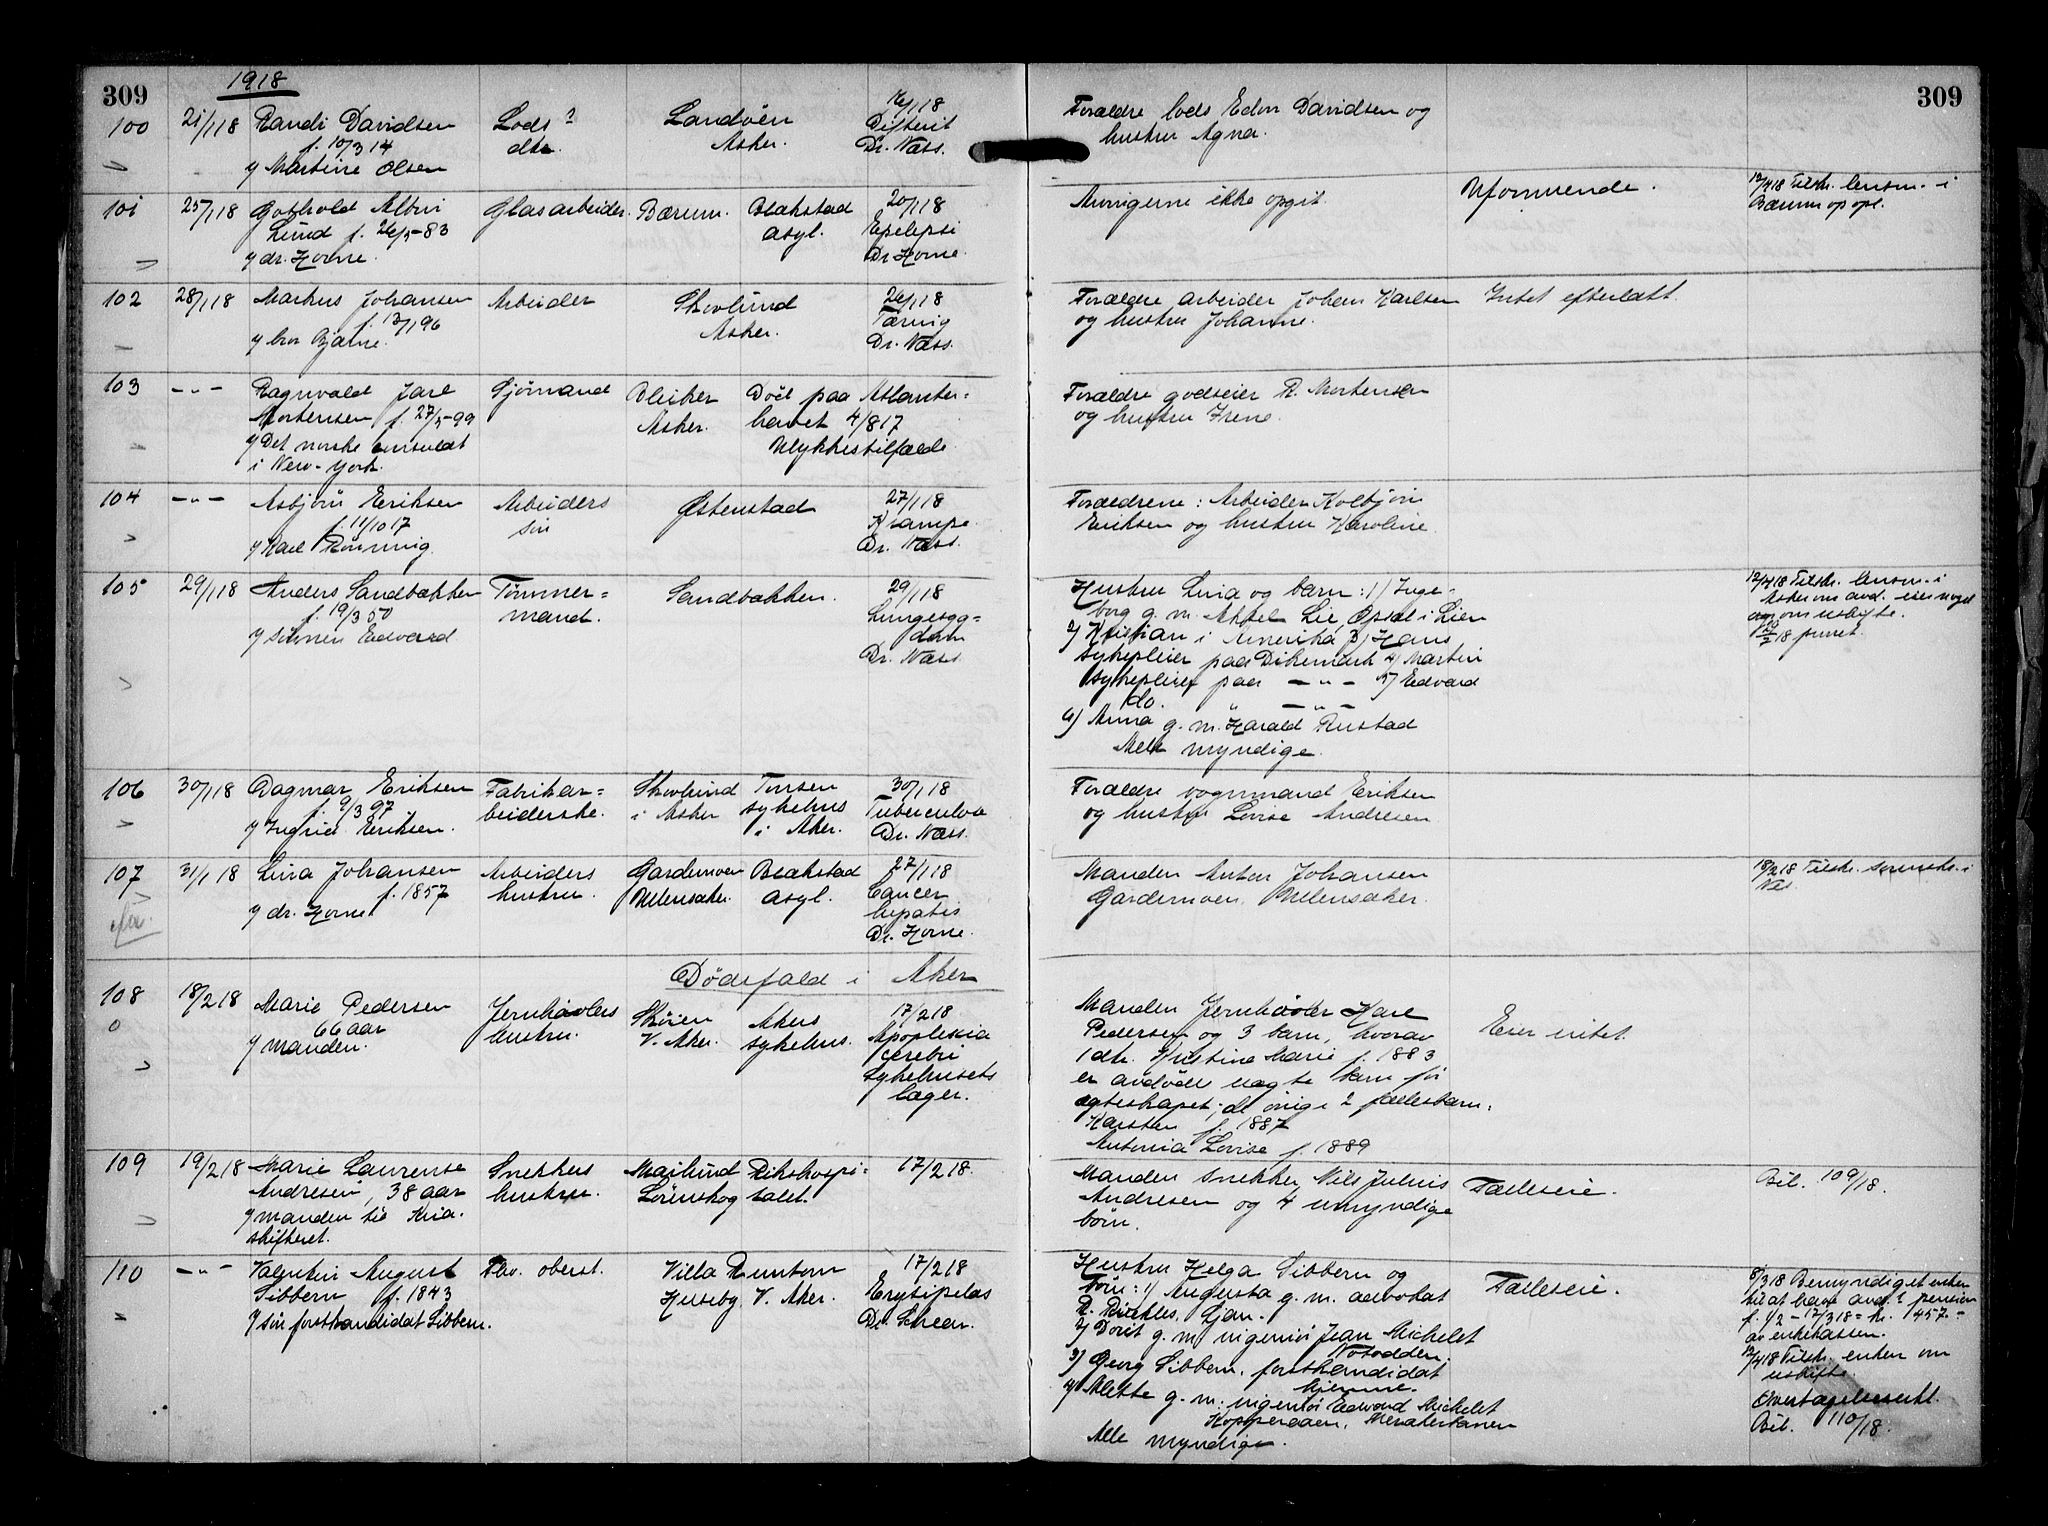 309
1918
309
100
21/1 18
Randi Davidsen
f. 10/3 14
v/ Martine Olsen
Lods ?
dtr.
Landøen
Asker.
16/1 18
Difterit
Dr. Næss.
Forældre lods Edvin Davidsen og
hustru Agna.
101
25/1 18
Gothold Albin
Lund f. 26/5-83
v/ dr. Horne.
Glasarbeider.
Bærum.
Blakstad
asyl.
20/1 18
Epelepsi
Dr. Horne.
Arvingerne ikke opgit.
Uformuende.
12/4 18 Tilskr. lensm. i
Bærum op opl.
102
28/1 18
Markus Johansen
f. 13/1 96
v/ bror Bjarne.
Arbeider
Skovlund
Asker.
26/1 18
Tæring
Dr. Næss.
Forældre arbeider Johan Karlsen
og hustru Johanne.
Intet efterlatt.
103
— " —
Ragnvald Jarl
Mortensen f. 27/5-99
v/ Det norske consulat
i New-York.
Sjømand
Bleiker
Asker.
Död paa Atlanter=
havet 4/8 17
Ulykkestilfælde
Forældre godseier R. Mortensen
og hustru Irene.
104
— " —
Asbjørn Eriksen
f. 11/10 17
v/ Karl Rönning.
Arbeiders
sön
Østenstad
27/1 18
Krampe
Dr. Næss.
Forældrene: Arbeider Kolbjörn
Eriksen og hustru Karoline.
105
29/1 18
Anders Sandbakken
f. 19/3 50
v/ sönnen Edvard
Tømmer=
mand.
Sandbakken.
29/1 18
Lungesyg=
dom
Dr. Næss.
Hustru Lina og barn: 1/ Inge=
borg g. m. Aksel Lie, Opsal i Lier
2/ Kristian i Amerika 3/ Hans
sykepleier paa Dikemark 4/ Martin
sykepleier paa — " — 5/ Edvard
do. " — " —
6/ Anna g. m. Harald Rustad
Alle myndige.
12/4 18 Tilskr. lensm. i
Asker om avd. eier noget
og om uskifte.
18 purret.
106
30/1 18
Dagmar Eriksen
f. 9/3 97.
v/ Ingrid Eriksen.
Fabrikar=
beiderske.
Skovlund
i Asker
Tonsen
sykehus
i Aker.
30/1 18
Tuberculose
Dr. Næss.
Forældre vognmand Eriksen
og hustru Lovise Andresen
107
31/1 18
Lina Johansen
f. 1857
v/ dr. Horne
Arbeiders
hustru.
Gardemoen
Ullensaker.
Blakstad
asyl.
27/1 18
Cancer
hepatis
Dr. Horne.
Manden Anton Johansen
Gardemoen, Ullensaker.
18/2 18 Tilskr. sorenskr. i
Nes.
Dödsfald i Aker
108
0
18/2 18
Marie Pedersen
66 aar
v/ manden.
Jernhøvlers
hustru.
Skøien
V. Aker.
Akers
sykehus.
17/2 18
Apoplexia
cerebri
Sykehusets
læger.
Manden Jernhøvler Karl
Pedersen og 3 barn, hvorav
1 dtr. Kristine Marie f. 1883
er avdödes uægte barn før
egteskapet; de övrige 2 fællesbarn:
Karsten f. 1887
Antonia Lovise f. 1889
Eier intet.
109
19/2 18
Marie Laurense
Andresen, 38 aar
v/ manden til Kria.
skifteret.
Snekkers
hustru.
Majlund
Lörenskog
Rikshospi=
talet.
17/2 18.
Manden snekker Nils Julius
Andresen og 4 umyndige
börn.
Fælleseie.
Bil. 109/18.
110
— " —
Valentin August
Sibbern f. 1843
v/ sön forstkandidat Sibbern.
Fhv. oberst.
Villa
Huseby V. Aker.
17/2 18
Erysipelas
Dr. Scheen.
Hustru Helga Sibbern og
börn: 1/ Augusta g. m. advokat
Ljan.
2/ Dorit g. m. ingeniör Jean Michelet
Notodden.
3/ Georg Sibbern, forstkandidat
hjemme.
4/ Alette g. m. ingeniör Edvard Michelet
Alle myndige.
Fælleseie.
8/3 18 Bemyndiget enken
til at hæve avd.s pension
f. 1/2 – 17/3 18 = kr. 457.=
av enkekassen.
12/4 18 Tilskr. enken om
uskifte.
Overtagelseserkl.
Bil. 110/18.